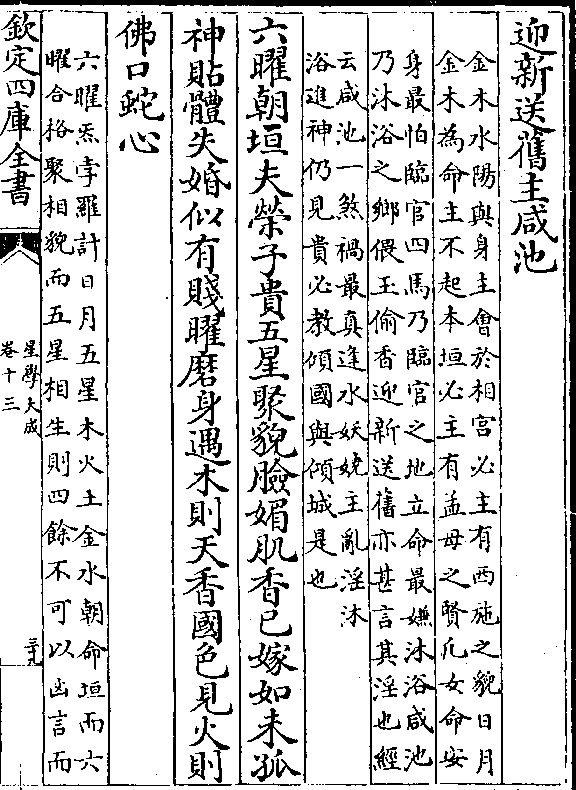 迎新送舊主咸池
金木水陽與身主會於相宫必主有西施之貌日月
金木為命主不起本垣必主有孟母之賢凡女命安
身最怕臨官四馬乃臨官之地立命最嫌沐浴咸池
乃沐浴之鄉偎玉偷香迎新送舊亦甚言其淫也經
云咸池一煞禍最真逢水妖嬈主亂淫沐
浴進神仍見貴必教傾國與傾城是也
六曜朝垣夫榮子貴五星聚貌臉媚肌香已嫁如未孤
神貼體失婚似有賤曜磨身遇木則天香國色見火則
佛口蛇心
六曜炁孛羅計日月五星木火土金水朝命垣而六
曜合格聚相貌而五星相生則四餘不可以凶言而
欽定四庫全書
星學大成
卷十三
三十九